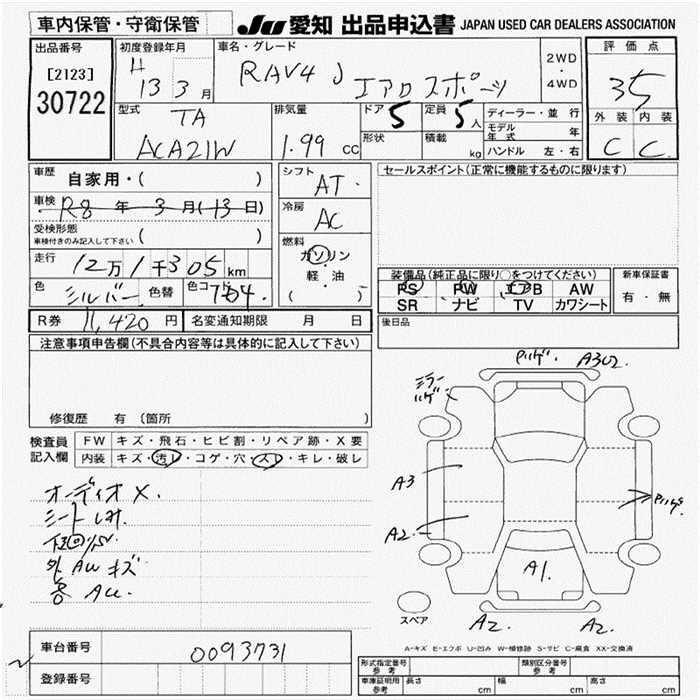 車内保管・守衛保管
JU 愛知 出品申込書 JAPAN USED CAR DEALERS ASSOCIATION
出品番号
[2123]
30722
初度登録年月
H 13 3 月
車名・グレード
RAV4 J エアロスポーツ
2WD
・
4WD
評価点
35
外装 内装
C C
型式
TA
ACA21W
排気量
1.99 cc
ドア 5
定員 5 人
形状
積載 kg
ディーラー・並行
モデル年式 年
ハンドル 左・右
車歴 自家用・( )
車検 R8 年 3 月(13 日)
受検形態 ( )
車検付きのみ記入して下さい
走行 12万1千305 km
色 シルバー 色替 色コード
シフト
AT
冷房
AC
燃料
ガソリン
軽・油
( )
セールスポイント(正常に機能するものに限ります)
装備品(純正品に限り○をつけてください)
PS PW エアB AW
SR ナビ TV カワシート
新車保証書
有・無
後日品
R券 11,420 円 名変通知期限 月 日
注意事項申告欄(不具合内容等は具体的に記入して下さい)
修復歴 有 (箇所
検査員記入欄
FW キズ・飛石・ヒビ割・リペア跡・X要
内装 キズ・汚レ・コゲ・穴・スレ・キレ・破レ
オーディオ X.
シート
外 AW キズ
ハゲ A3U2
ミラー
ハゲ
A3
A2
ハゲ
A1
A2 A2
スペア
A-キズ E-エクボ U-凹み W-補修跡 S-サビ C-腐食 XX-交換済
車台番号 0093731
登録番号
形式指定番号 参考
類別区分番号 参考
車庫証明用 参考 長さ cm 幅 cm 高さ cm